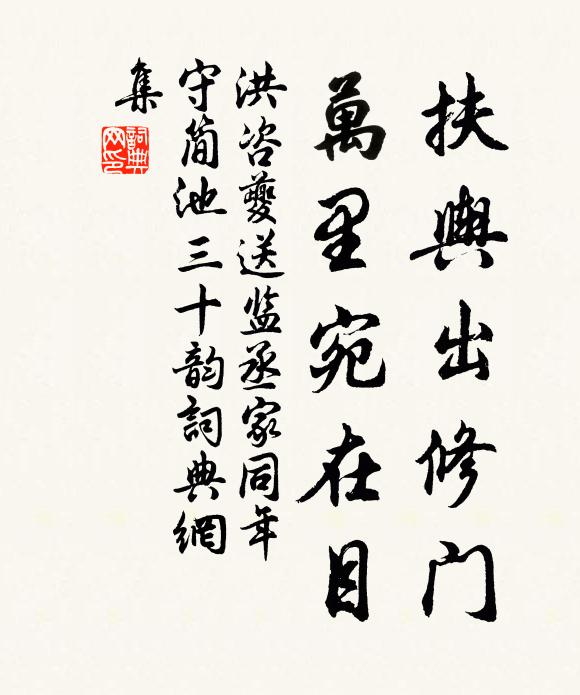 扶輿出修門
萬里宛在目
洪咨夔送监丞家同年
守简池三十韵詞典網
集
詞典网印